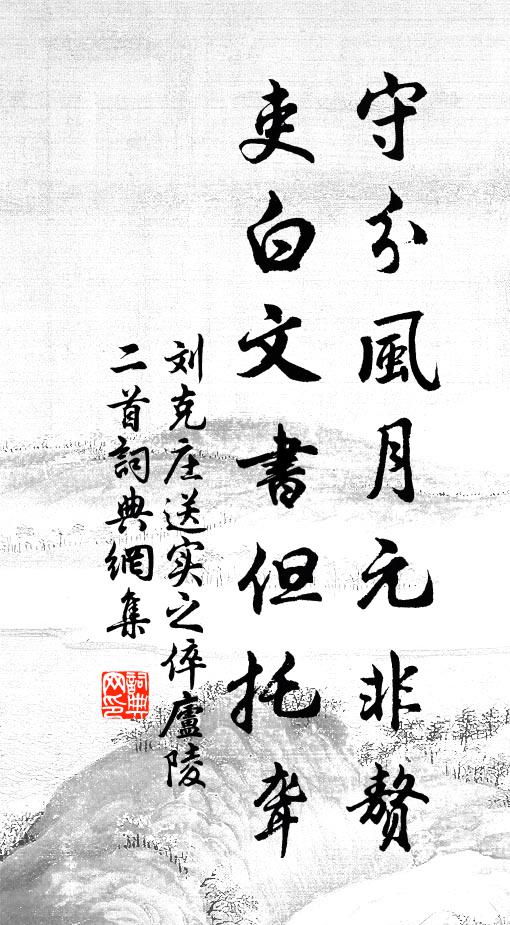 守分風月元非贅
吏白文書但托聋
刘克庄送实之倅廬陵
二首詞典網集
詞典網印